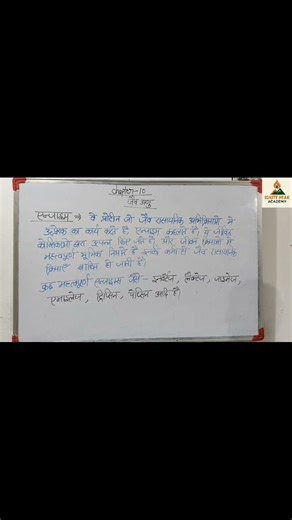 chapter-10
जैव अणु
एन्जाइम → वे प्रोटीन जो जैव रासायनिक अभिक्रियाओं में
उत्प्रेरक का कार्य करते हैं एन्जाइम कहलाते हैं। ये जीवित
कोशिकाओं द्वारा उत्पन्न किए जाते हैं और जैविक क्रियाओं में
महत्वपूर्ण भूमिका निभाते हैं इनके कारण ही जैव रासायनिक
क्रियाएं हो जाती हैं।
कुछ महत्वपूर्ण एन्जाइम जैसे - इन्वर्टेज, लैक्टेज, जाइमेज,
एमाइलेज, ट्रिप्सिन, पेप्सिन आदि हैं।
IGNITE PEAK
ACADEMY